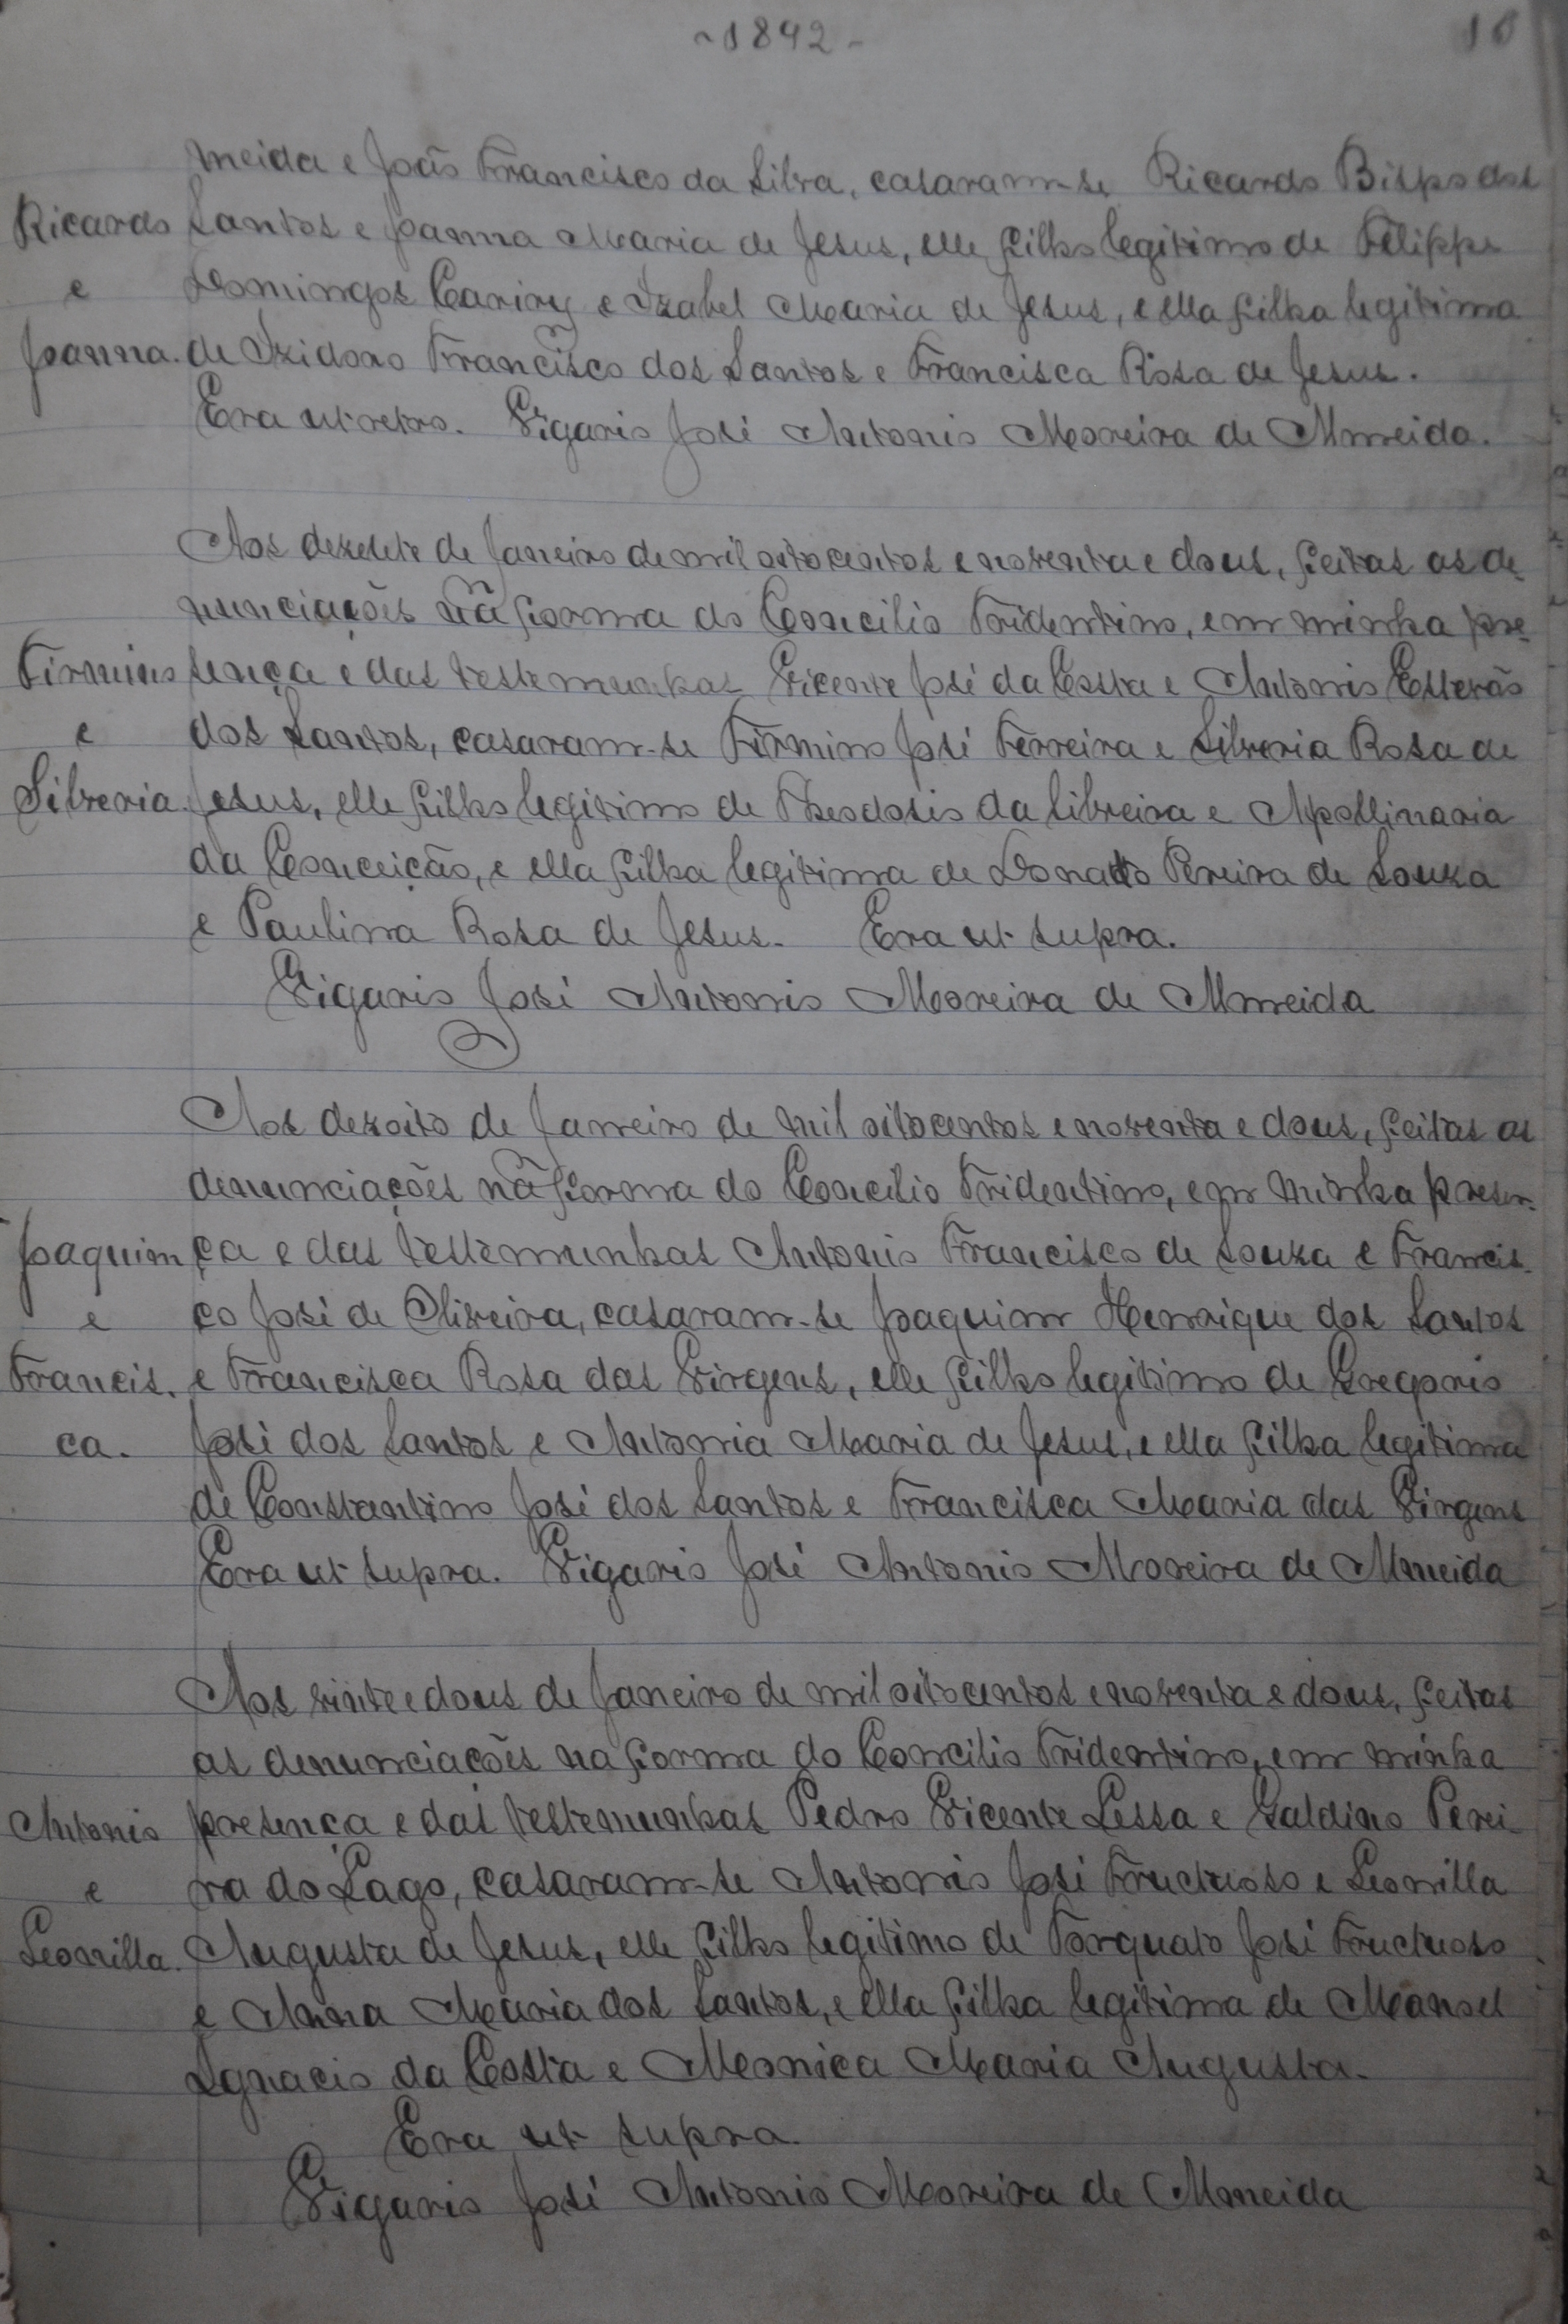 ~1892-
10
meida e João Francisco da Silva, casaram-se Ricardo Bispo dos
Ricardo Santos e Joanna Maria de Jesus, elle filho legitimo de Filippe
e Domingos Cariry e Izabel Maria de Jesus, e ella filha legitima
Joanna. de Izidoro Francisco dos Santos e Francisca Rosa de Jesus.
Era ut retro. Vigario José Antonio Moreira de Almeida.
Aos dezesete de Janeiro de mil oitocentos e noventa e dous, feitas as de-
nunciações na forma do Concilio Tridentino, em minha pre-
Firmino sença e das testemunhas Vicente José da Costa e Antonio Estevão
e dos Santos, casaram-se Firmino José Ferreira e Silveria Rosa de
Silveria. Jesus, elle filho legitimo de Theodosio da Silveira e Apollinaria
da Conceição, e ella filha legitima de Donato Pereira de Souza
e Paulina Rosa de Jesus. Era ut supra.
Vigario José Antonio Moreira de Almeida
Aos dezoito de Janeiro de mil oitocentos e noventa e dous, feitas as
denunciações na forma do Concilio Tridentino, em minha presen-
Joaquim ça e das testemunhas Antonio Francisco de Souza e Francis-
e co José de Oliveira, casaram-se Joaquim Henrique dos Santos
Francis. e Francisca Rosa das Virgens, elle filho legitimo de Gregorio
ca. José dos Santos e Antonia Maria de Jesus, e ella filha legitima
de Constantino José dos Santos e Francisca Maria das Virgens
Era ut supra. Vigario José Antonio Moreira de Almeida
Aos vinte e dous de Janeiro de mil oitocentos e noventa e dous, feitas
as denunciações na forma do Concilio Tridentino, em minha
Antonio presença e das testemunhas Pedro Vicente Lessa e Galdino Perei-
e ra do Lago, casaram-se Antonio José Fructuoso e Leonilla
Leonilla. Augusta de Jesus, elle filho legitimo de Torquato José Fructuoso
e Anna Maria dos Santos, e ella filha legitima de Manoel
Ignacio da Costa e Monica Maria Augusta.
Era ut supra.
Vigario José Antonio Moreira de Almeida